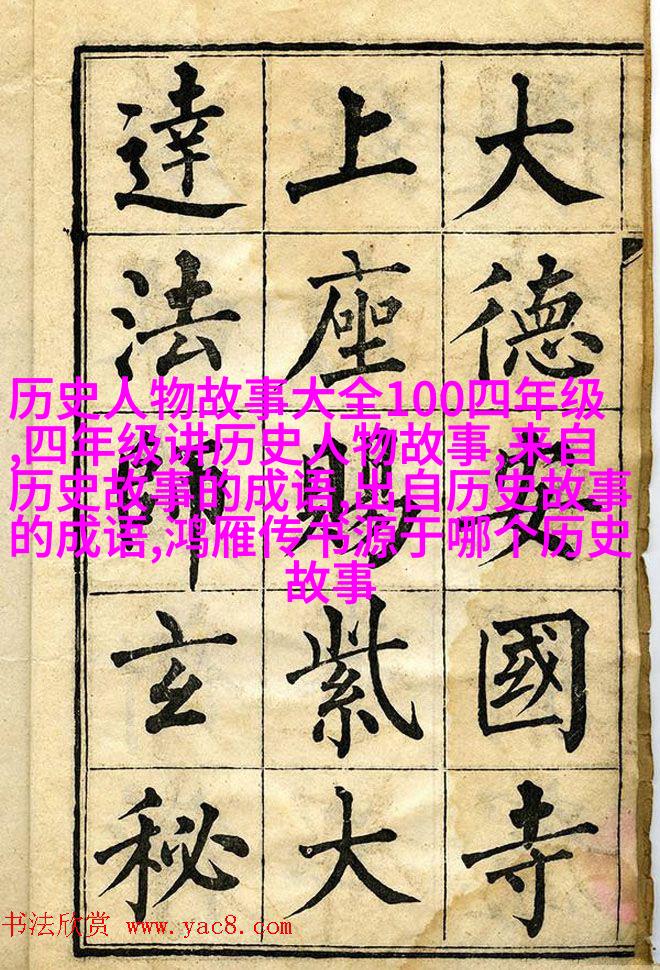 大德安國寺
上座賜紫大
達法師玄秘
历史人物故事大全100四年级
,四年级讲历史人物故事,来自
历史故事的成语,出自历史故事
的成语,鸿雁传书源于哪个历史
故事
书法欣赏 www.yac8.com